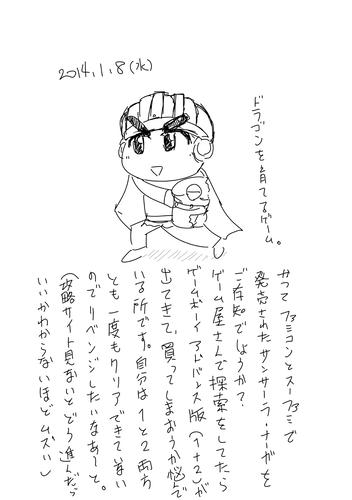 2014.1.8(水)
ドラゴンを育てるゲーム。
かつてファミコンとスーファミで
発売されたサンサーラ・ナーガを
ご存知でしょうか？
ゲーム屋さんで探索をしてたら
ゲームボーイアドバンス版(1+2)が
出てきて、買ってしまおうか悩んで
いる所です。自分は1と2両方
とも一度もクリアできていない
のでリベンジしたいなあーと。
(攻略サイト見ないとどう進んだら
いいかわからないほどムズい)